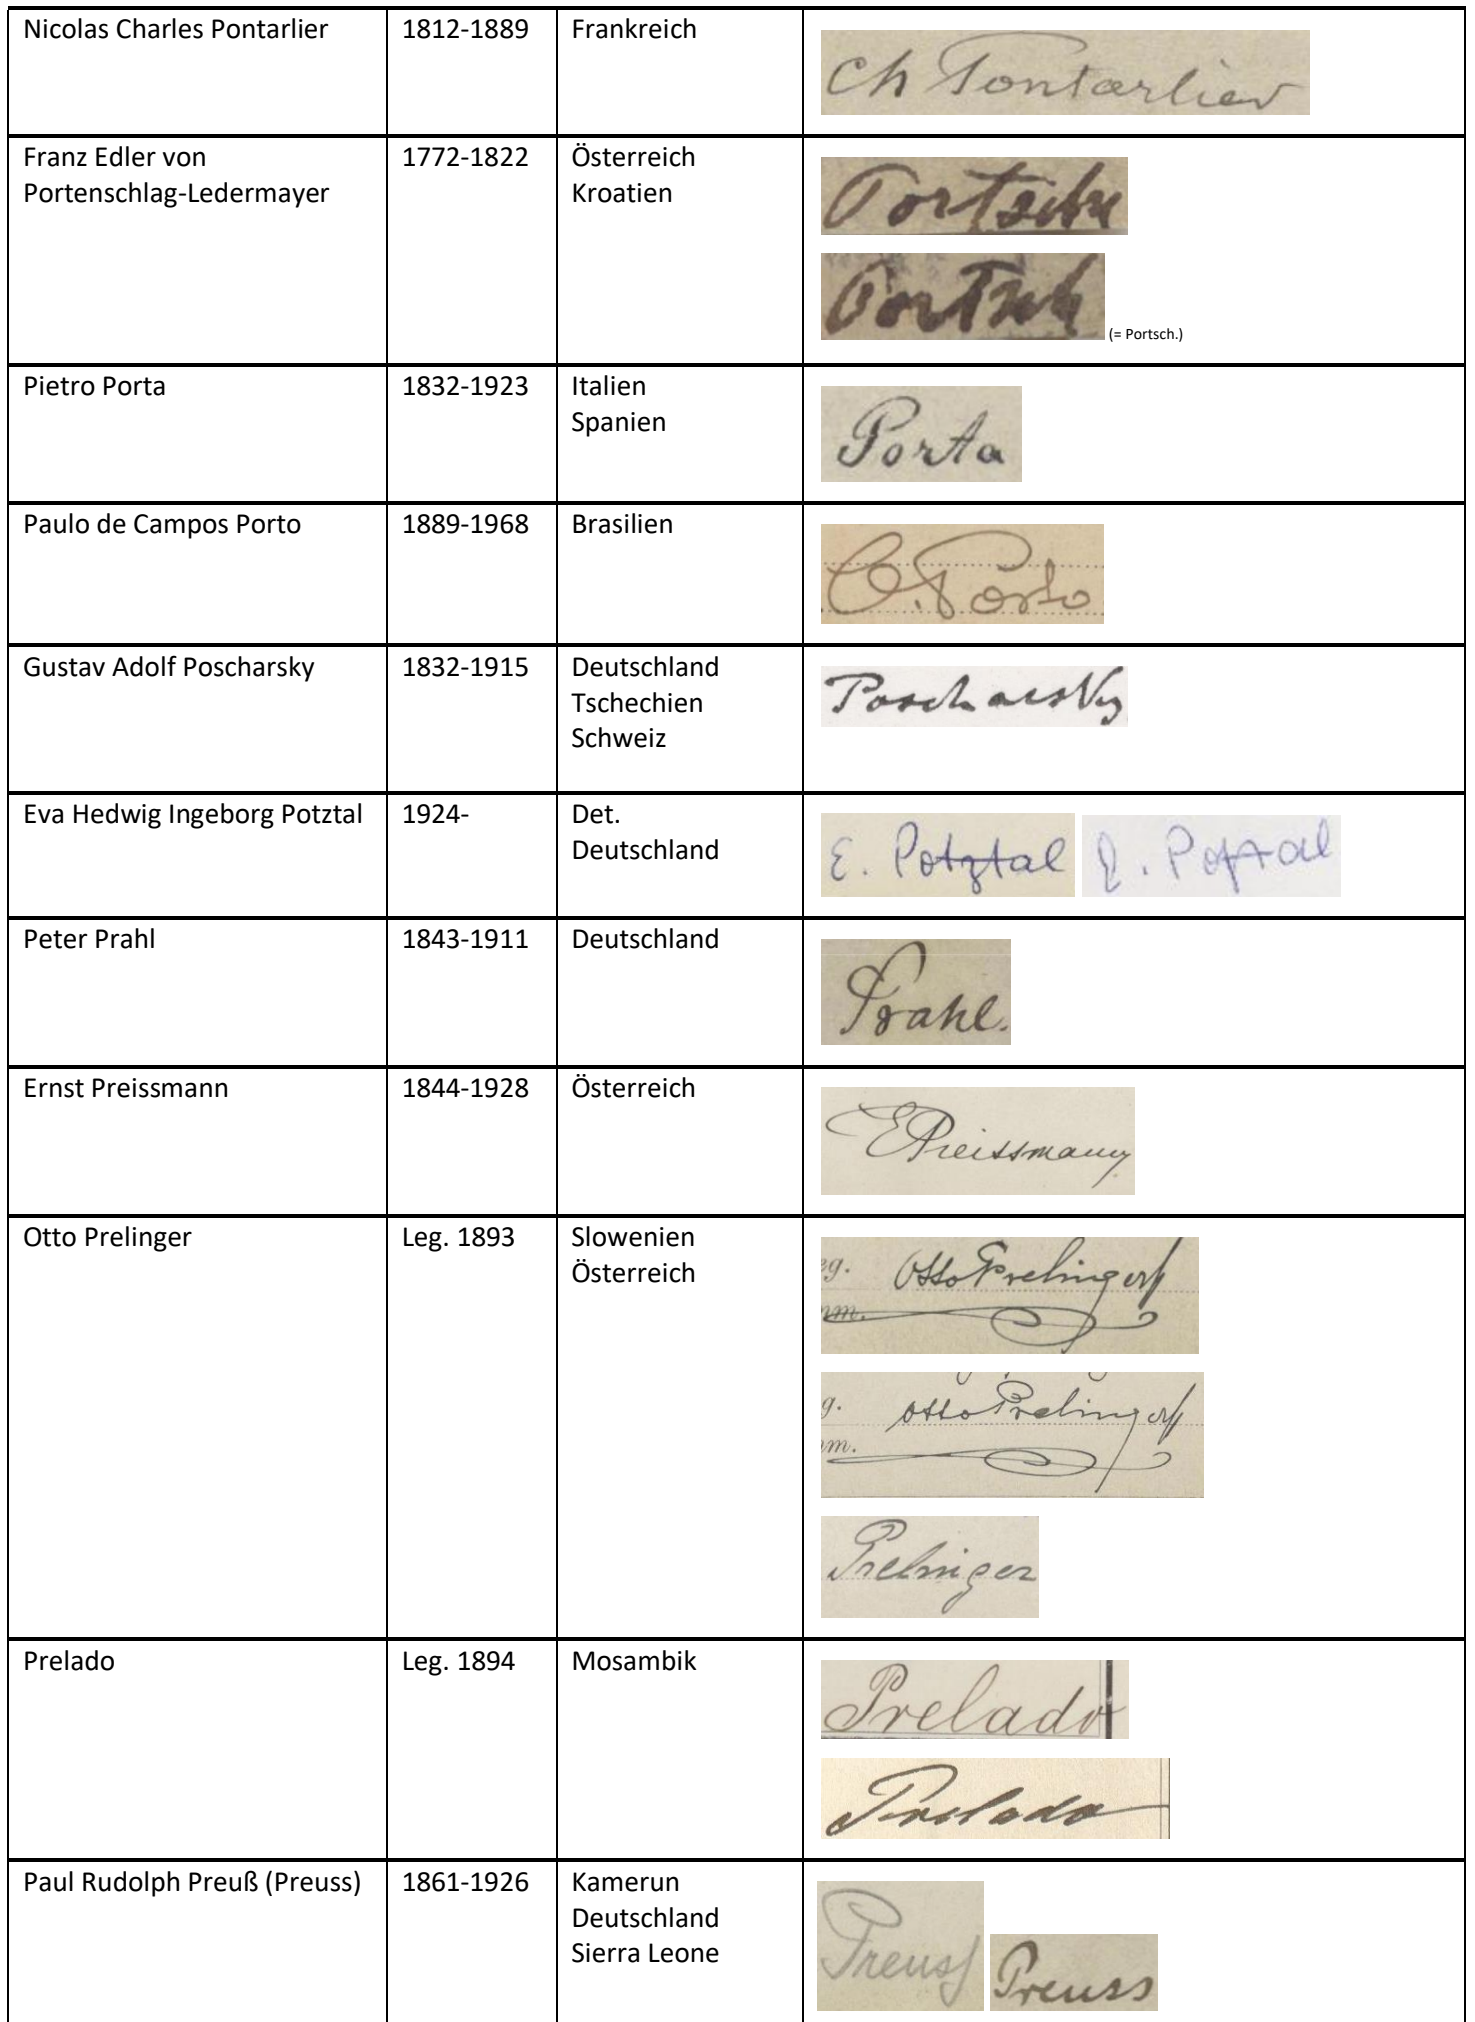 Nicolas Charles Pontarlier 1812-1889 Frankreich
Ch Pontarlier
Franz Edler von 1772-1822 Österreich
Portenschlag-Ledermayer Kroatien
Portsch
Portsch
(= Portsch.)
Pietro Porta 1832-1923 Italien
Spanien
Porta
Paulo de Campos Porto 1889-1968 Brasilien
C. Porto
Gustav Adolf Poscharsky 1832-1915 Deutschland
Tschechien
Schweiz
Poscharsky
Eva Hedwig Ingeborg Potztal 1924- Det.
Deutschland
E. Potztal E. Potztal
Peter Prahl 1843-1911 Deutschland
Prahl.
Ernst Preissmann 1844-1928 Österreich
E Preissmann
Otto Prelinger Leg. 1893 Slowenien
Österreich
eg. Otto Prelinger
mm.
g. Otto Prelinger
m.
Prelinger
Prelado Leg. 1894 Mosambik
Prelado
Prelado
Paul Rudolph Preuß (Preuss) 1861-1926 Kamerun
Deutschland
Sierra Leone
Preuss Preuss